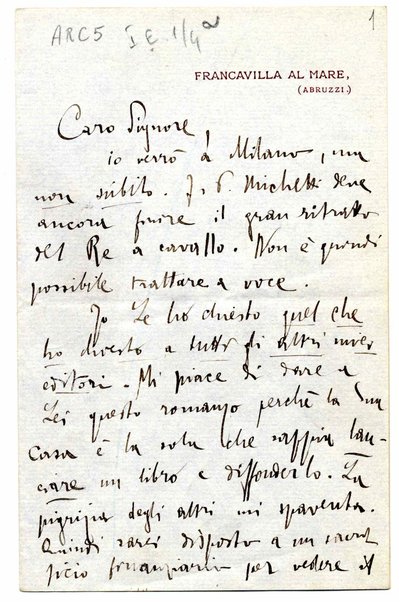 1
ARC5 I E 1/4a
FRANCAVILLA AL MARE,
(ABRUZZI.)
Caro Signore,
io verrò a Milano, ma
non subito. F. P. Michetti deve
ancora finire il gran ritratto
del Re a cavallo. Non è quindi
possibile trattare a voce.
Io Le ho chiesto quel che
ho chiesto a tutti gli altri miei
editori. Mi piace di dare a
Lei questo romanzo perchè la Sua
Casa è la sola che sappia lan-
ciare un libro e diffonderlo. La
pigrizia degli altri mi spaventa.
Quindi sarei disposto a un sacri-
ficio finanziario per vedere il